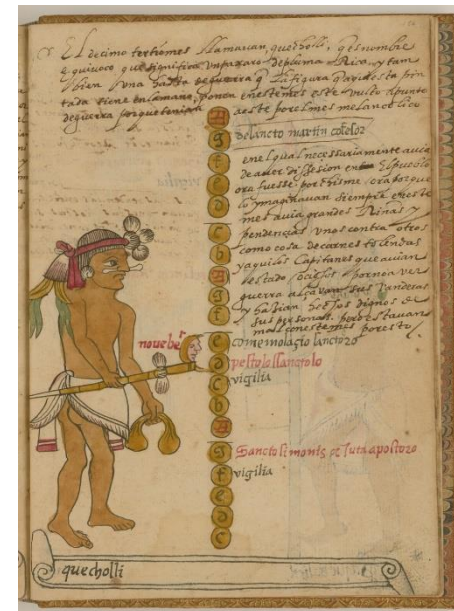 El decimo tertiomes llamauan, quecholli, q es nombre
e quivoco que significa unpaxaro de pluma Rica, y tam
bien una hasta de guerra q la figura
tada tiene en la mano, ponen en este mes este
de guerra porque tenian aeste por el mes melancolico
A
g de sancto martin cofesor
f en el qual necessariamente avia
e de aver dissesion en El pueblo
d ora fuesse por chisme, ora porque
lo ymaginauan siempre en este
c mes avia grandes Riñas y
b pendenzas unos contra otros
A como cosa de carnes tolendas
g y aquellos Capitanes que avian
f estado ociosos
guerra alçavan sus vanderas
y hazian hechos dignos de
sus personas. pero estavan
mas con este mes por esto
novebre
e comemolacio sanctoro
d
c vigilia
b
A
g Sancto Simonis et Iuta apostoro
f vigilia
e
d
c
quecholli